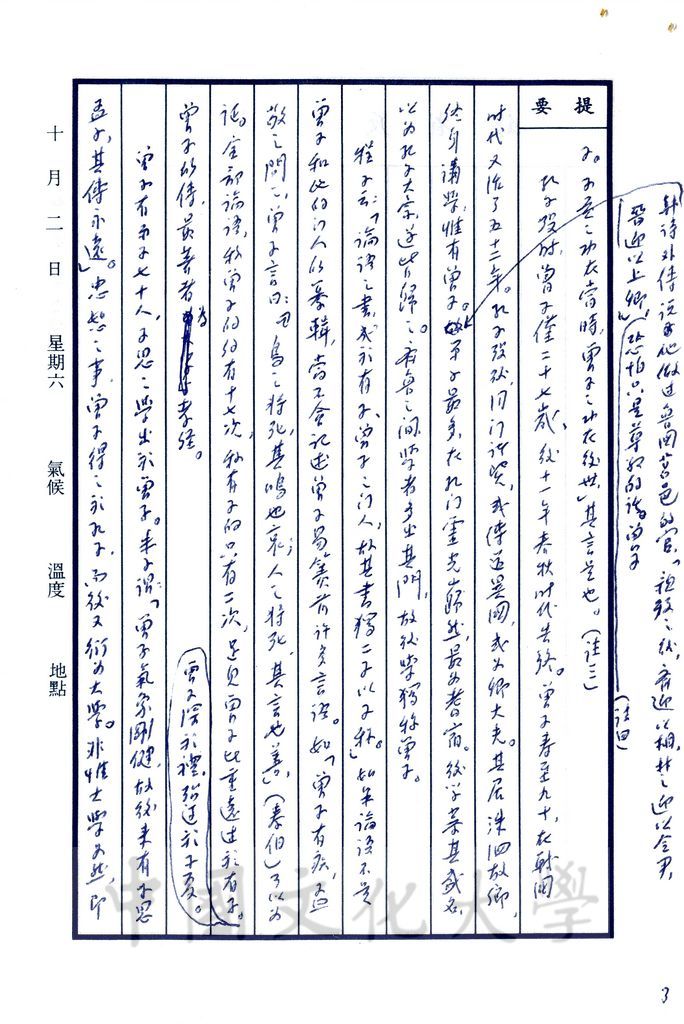 韓詩外傳說他做過魯國莒邑的官。「親歿之後，齊迎以相，楚迎以令尹，
晉迎以上卿」，恐怕只是尊敬的諸曾子
（註四）
提要
子。子夏之功在當時，曾子之功在後世」其言是也。（註三）
孔子歿時，曾子僅二十七歲，後十一年春秋時代告終。曾子壽至九十，在戰國
時代又活了五十二年。孔子歿後，同門諸賢，或傳道異國，或為卿大夫。其居洙泗故鄉，
終身講學，惟有曾子。故弟子最多，在孔門靈光巋然，最為耆宿。後學慕其盛名，
以為孔子大宗，遂皆歸之。齊魯之間，學者多出其門，故後學獨稱曾子。
程子云：「論語之書，成於有子、曾子之門人，故其書獨二子以子稱。」如果論語不是
曾子和他的門人的纂輯，當不會記述曾子易簀前許多言語。如「曾子有疾，孟
敬子問之，曾子言曰：鳥之將死，其鳴也哀；人之將死，其言也善」（泰伯）可以為
證。全部論語，稱曾子的約有十七次，稱有子的只有三次，足見曾子比重遠過於有子。
曾子深於禮，殆過於子夏。
曾子的傳，最著者為孝經。
曾子有弟子七十人，子思之學出於曾子。朱子謂：「曾子氣象剛健，故後來有子思
孟子，其傳永遠。」忠恕之事，曾子得之於孔子，而後又衍為大學。非惟大學為然，即
十月二日 星期六 氣候 溫度 地點
中國文化大學
3